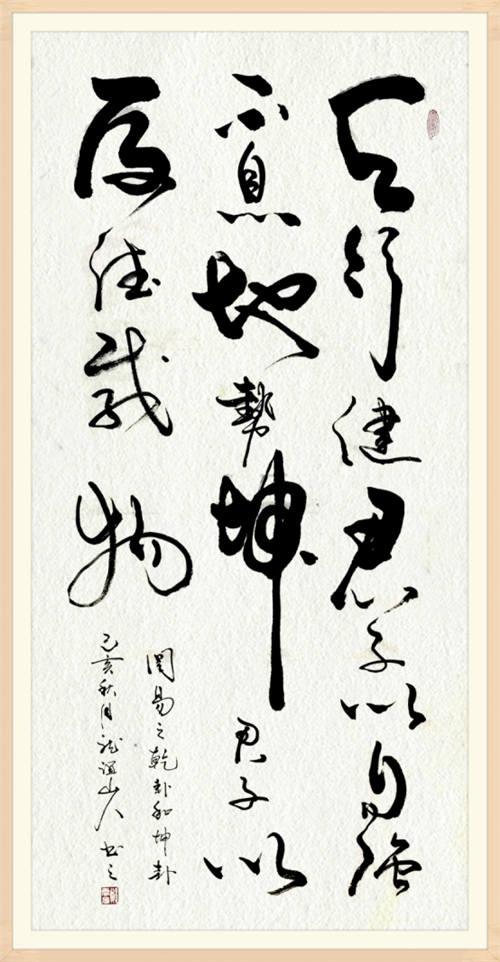 天行健君子以自强
不息地勢坤君子以
厚德載物
周易之乾卦和坤卦
己亥秋月山人书之